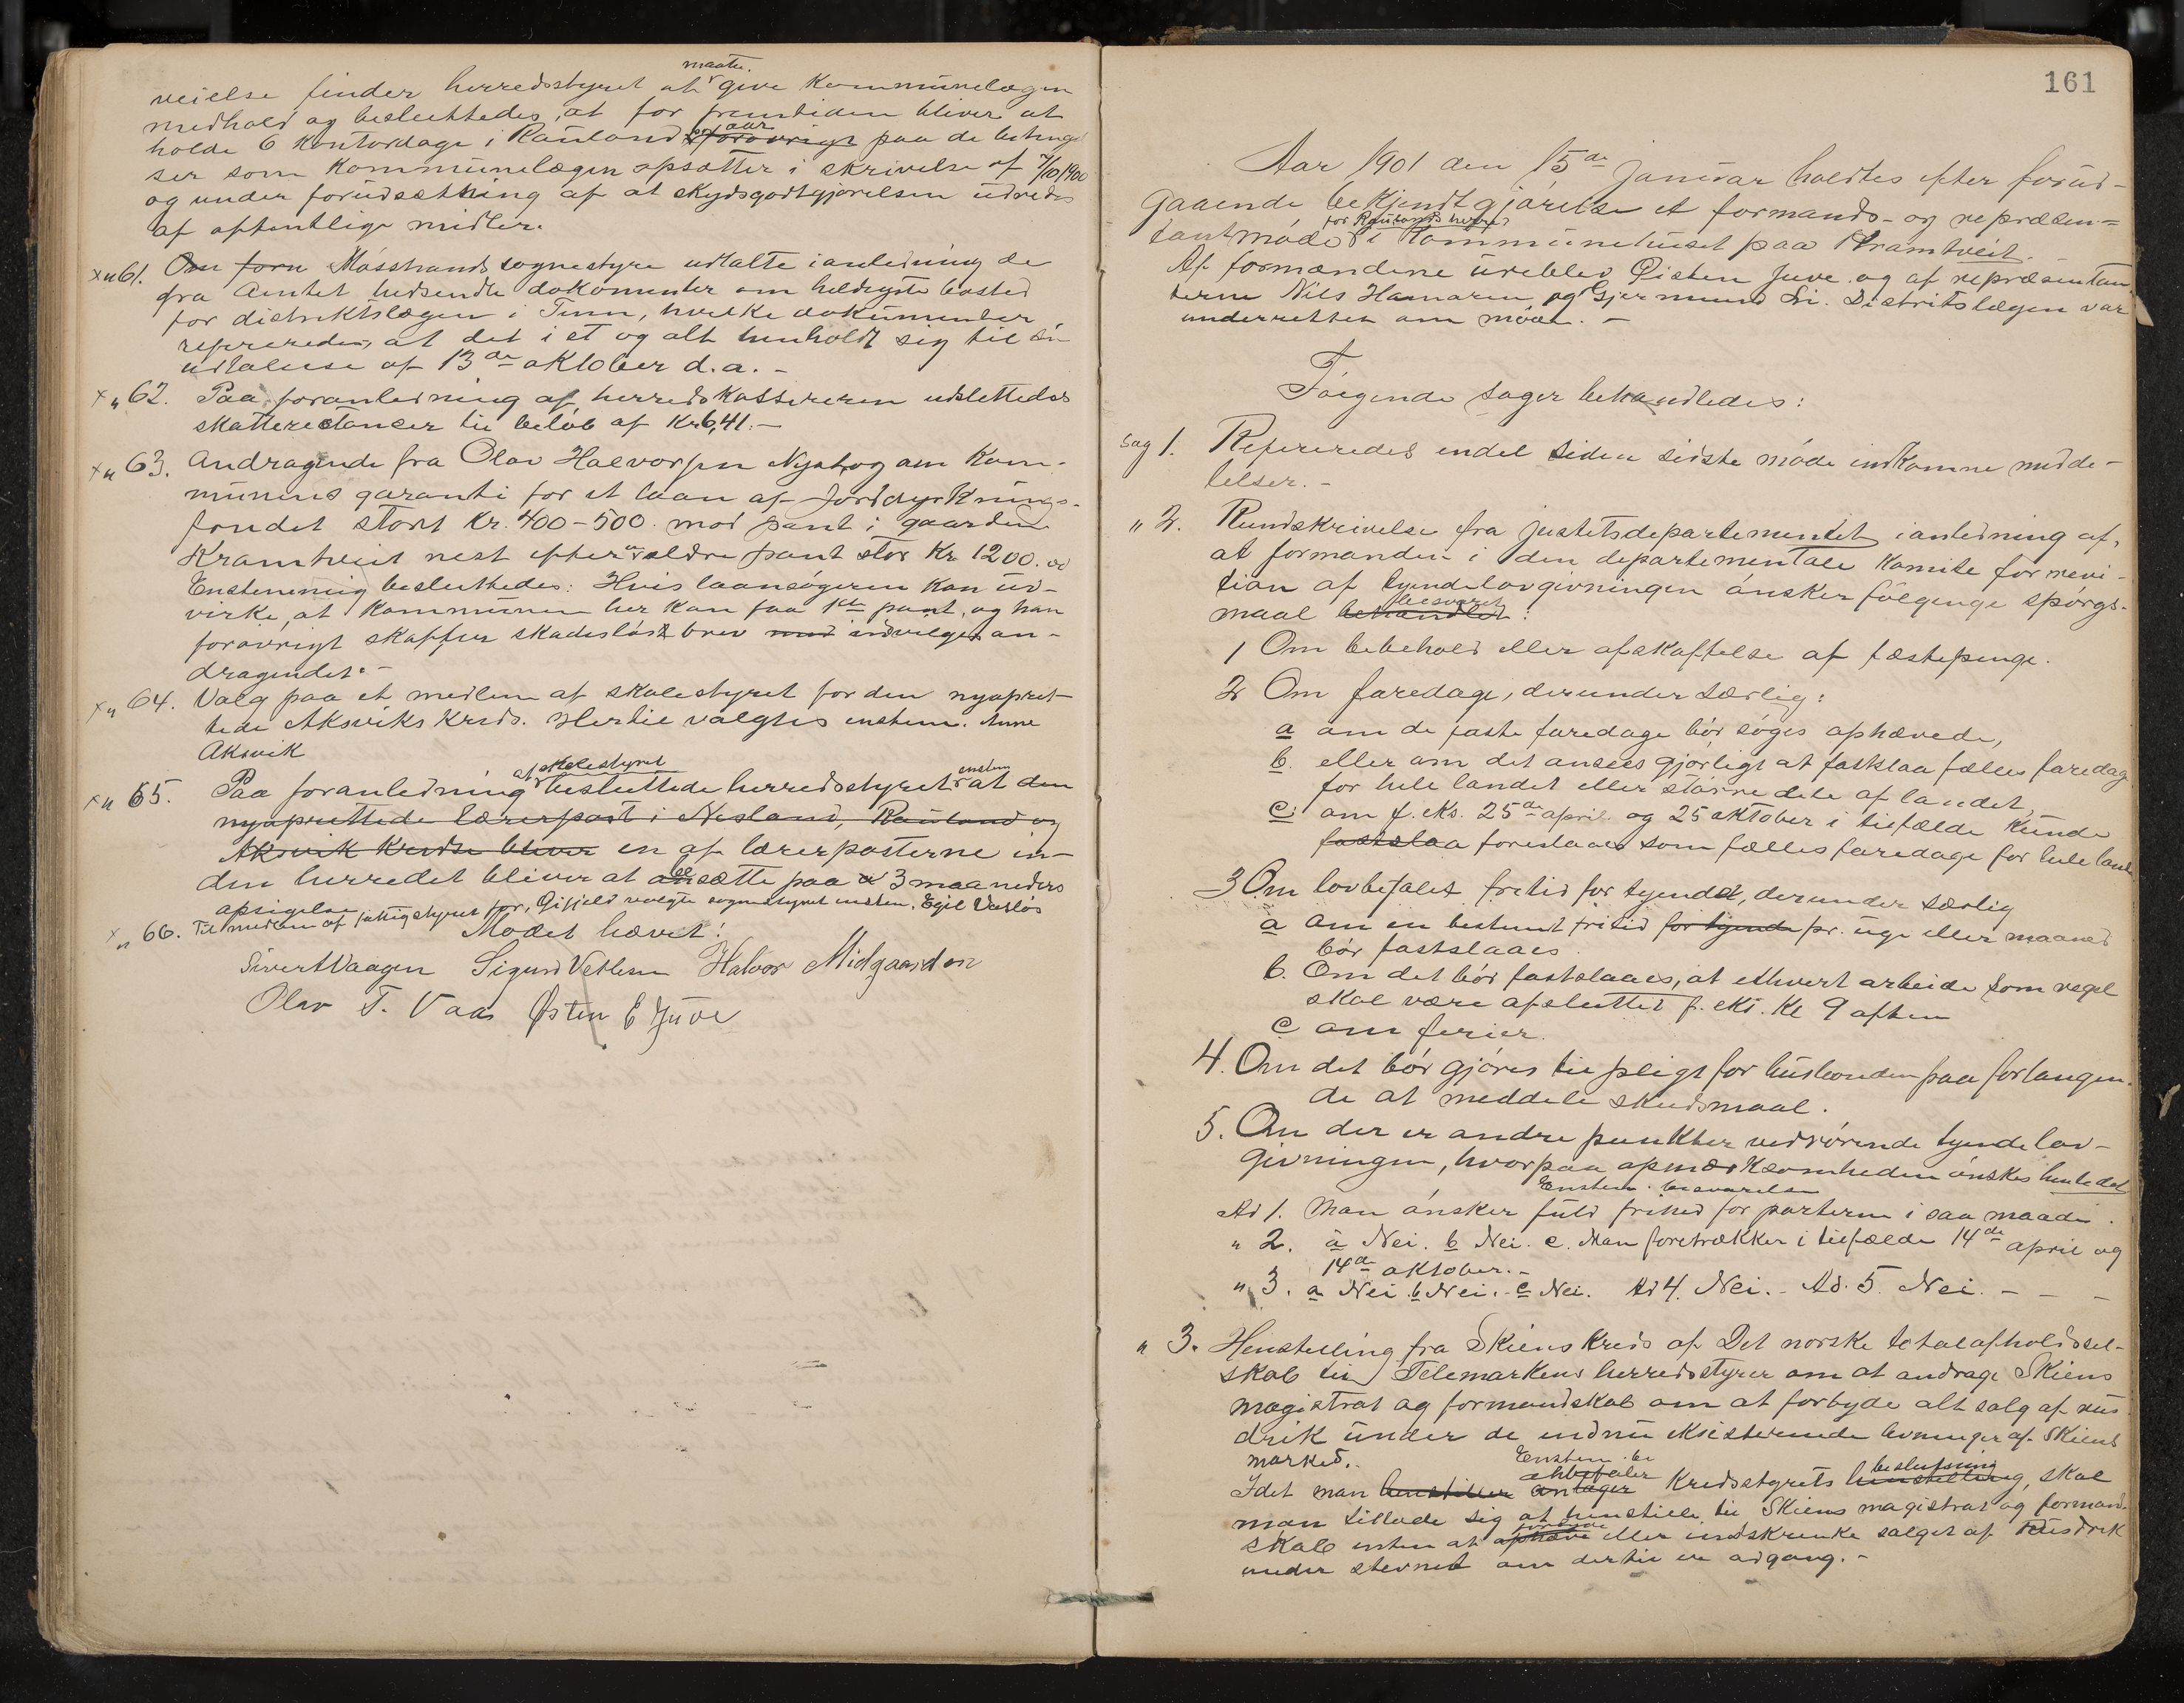 maatte
veielse finder herredsstyret at give Kommunelægen
medhold og besluttedes, at for fremtiden bliver at
holde 6 Kontordage i Rauland pr aar forøvrigt paa de beting
ser som Kommunelægen opsætter i skrivelse af 7/10 1900
og under forudsætning af at skydsgodtgjørelsen udredes
af offentlige midler.
x " 61. Om forn Mósstrands sognestyre udtalte i anledning de
fra Amtet tilsendte dokumenter om heldigste bosted
for distriktslægen i Tinn, hvilke dokumenter
refereredes, at det i et og alt henholdt sig til sin
udtalelse af 13de oktober d.a. -
x " 62. Paa foranledning af herredskassereren udslettedes
skatterestancer til beløb af Kr 6,41. -
x " 63. Andragende fra Olav Halvorsen Nystog om Kom-
munens garanti for et laan af Jorddyrknings-
fondet stort Kr. 400-500 mod pant i gaarden
Kramtveit nest efter ældre pant stor Kr 1200.00
Enstemmig besluttedes: Hvis laansøgeren kan ud-
virke, at Kommunen her kan faa 1ste pant, og han
forøvrigt skaffer skadesløst brev med indvilges an-
dragendet. -
x " 64. Valg paa et medlem af skolestyret for den nyopret-
tede Aksviks Kreds. Hertil valgtes enstem. Anne
Aksvik
x " 65. Paa foranledning af skolestyret besluttede herredsstyret enstem at den
nyoprettede lærerpost i Nesland, Rauland og
Aksvik Kredse bliver en af lærerposterne in-
den herredet bliver at besætte paa 3 maaneders
opsigelse
x " 66. Til medlem af fattigstyret for Gifjeld valgte sognestyret enstem. Egil Vaslös
Mødet hævet!
Sivert Vaagen Sigurd Vetlesen Halvor Midgaarden
Olav T. Vaa Østen E Juve
161
Aar 1901 den 15de Januar holdtes efter forud-
gaaende bekjendtgjørelse et formands- og repræsen=
tantmøde for Raulands herred i Kommunehuset paa Kramtveit.
Af formændene udeblev Østen Juve og af repræsentan
terne Nils Hamaren og Gjermund Li. Distriktslægen var
underrettet om mødet. -
Følgende sager behandledes:
Sag 1. Refereredes endel siden sidste møde indkomne medde-
lelser. -
" 2. Rundskrivelse fra justitsdepartementet i anledning af,
at formanden i den departementale Komite for revi-
tion af tyendelovgivningen ønsker følgende spørgs-
maal behandlet besvaret:
1 Om bebehold eller afskaffelse af fæstepenge.
2 Om faredage, derunder særlig:
a om de faste faredage bør søges ophævede,
b. eller om det ansees gjørligt at fastslaa fælles faredag
for hele landet eller større dele af landet,
c. om f. eks. 25de april og 25 oktober i tilfælde kunde
fastslaa foreslaaes som fælles faredage for hele landet
3 Om lovbefalet fritid for tyendet, derunder særlig
a om en bestemt fritid for tyende pr. uge eller maaned
bør fastslaaes
b. Om det bør fastslaaes, at ethvert arbeide som regel
skal være afsluttet f. eks. Kl 9 aften
c om ferier.
4. Om det bør gjøres til pligt for husbonden paa forlangen-
de at meddele skudsmaal.
5. Om der er andre punkter vedrørende tyendelov-
givningen, hvorpaa opmærksomheden ønskes henledet
Enstem. besvarelse
Ad 1. Man ønsker fuld frihed for parterne i saa maade.
" 2. a Nei. b Nei. c. Man foretrækker i tilfælde 14de april og
14de oktober. -
" 3. a Nei. b Nei. - c Nei. Ad 4. Nei. - Ad. 5. Nei. - - -
" 3. Henstilling fra Skiens Kreds af Det norske totalafholdssel-
skab til Telemarkens herredsstyrer om at andrage Skiens
magistrat og formandskab om at forbyde alt salg af rus
drik under de endnu eksisterende levninger af Skiens
marked.
Enstem. be
Idet man henstiller anlager anbefaler Kredsstyrets henstilling beslutning, skal
man tillade sig at henstille til Skiens magistrat og formand-
skab enten at ophæve forbyde eller indskrænke salget af rusdrik
under stevnet om dertil er adgang. -